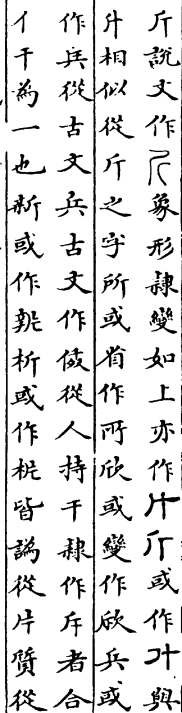 斤說文作𠂆象形隸變如上亦作斤或作與
相似從斤之字所或省作所欣或變作欣兵或
作兵從古文兵古文作㑌從人持干隸作斥者合
亻干為一也新或作析或作枂皆譌從片質從